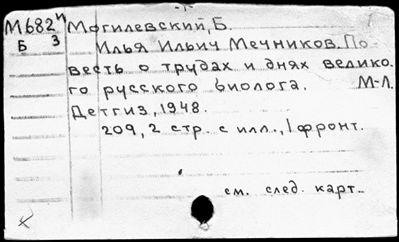 М682и Могилевский, Б.
Б 3 Илья Ильич Мечников. По-
весть о трудах и днях велико-
го русского биолога. М-Л.
Детгиз, 1948.
209, 2 стр. с илл., 1 фронт.
см. след. карт.